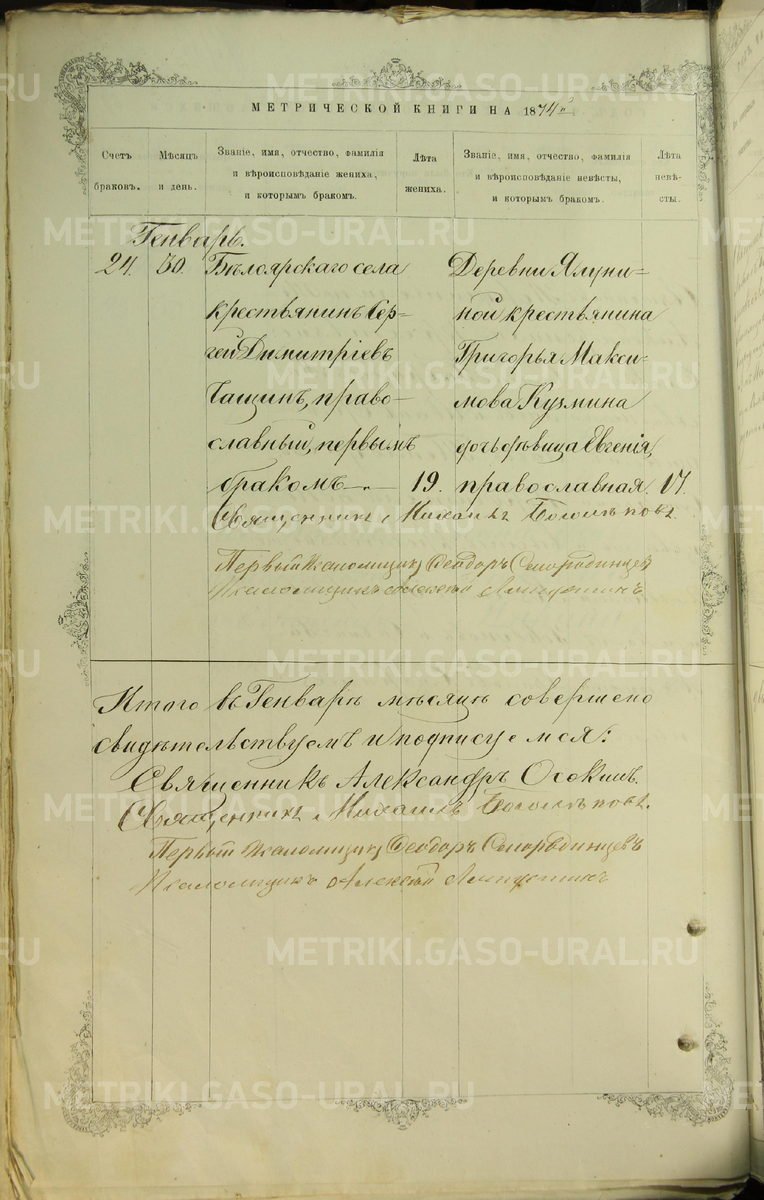 МЕТРИЧЕСКОЙ КНИГИ НА 1874й
Счетъ браковъ.
Мѣсяцъ и день.
Званіе, имя, отчество, фамилія и вѣроисповѣданіе жениха, и которымъ бракомъ.
Лѣта жениха.
Званіе, имя, отчество, фамилія и вѣроисповѣданіе невѣсты, и которымъ бракомъ.
Лѣта невѣ-сты.
Генварь.
24. 30. Бѣлоярскаго села
крестьянинъ Сер-
гей Димитріевъ
Чащинъ, право-
славный, первымъ
бракомъ 19.
Деревни Ялуни-
ной крестьянина
Григорья Макси-
мова Кузмина
дочь дѣвица Евгенія,
православная. 17.
Священникъ Михаилъ
Первый Псаломщикъ Ѳеодоръ Смородинцевъ
Псаломщикъ Алексѣй
Итого въ Генварѣ мѣсяцѣ совершено
свидѣтельствуемъ и подписуемся:
Священникъ Александръ Осокинъ.
Священникъ Михаилъ
Первый Псаломщикъ Ѳеодоръ Смородинцевъ
Псаломщикъ Алексѣй
METRIKI.GASO-URAL.RU